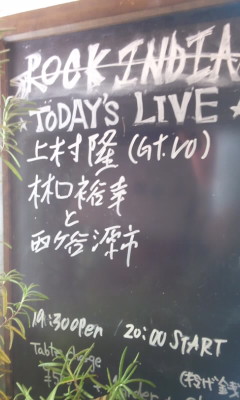 ROCK INDIA
TODAY'S LIVE
上村隆(Gt.Vo)
林口裕幸
と
西谷源市
19:30open / 20:00 START
Table